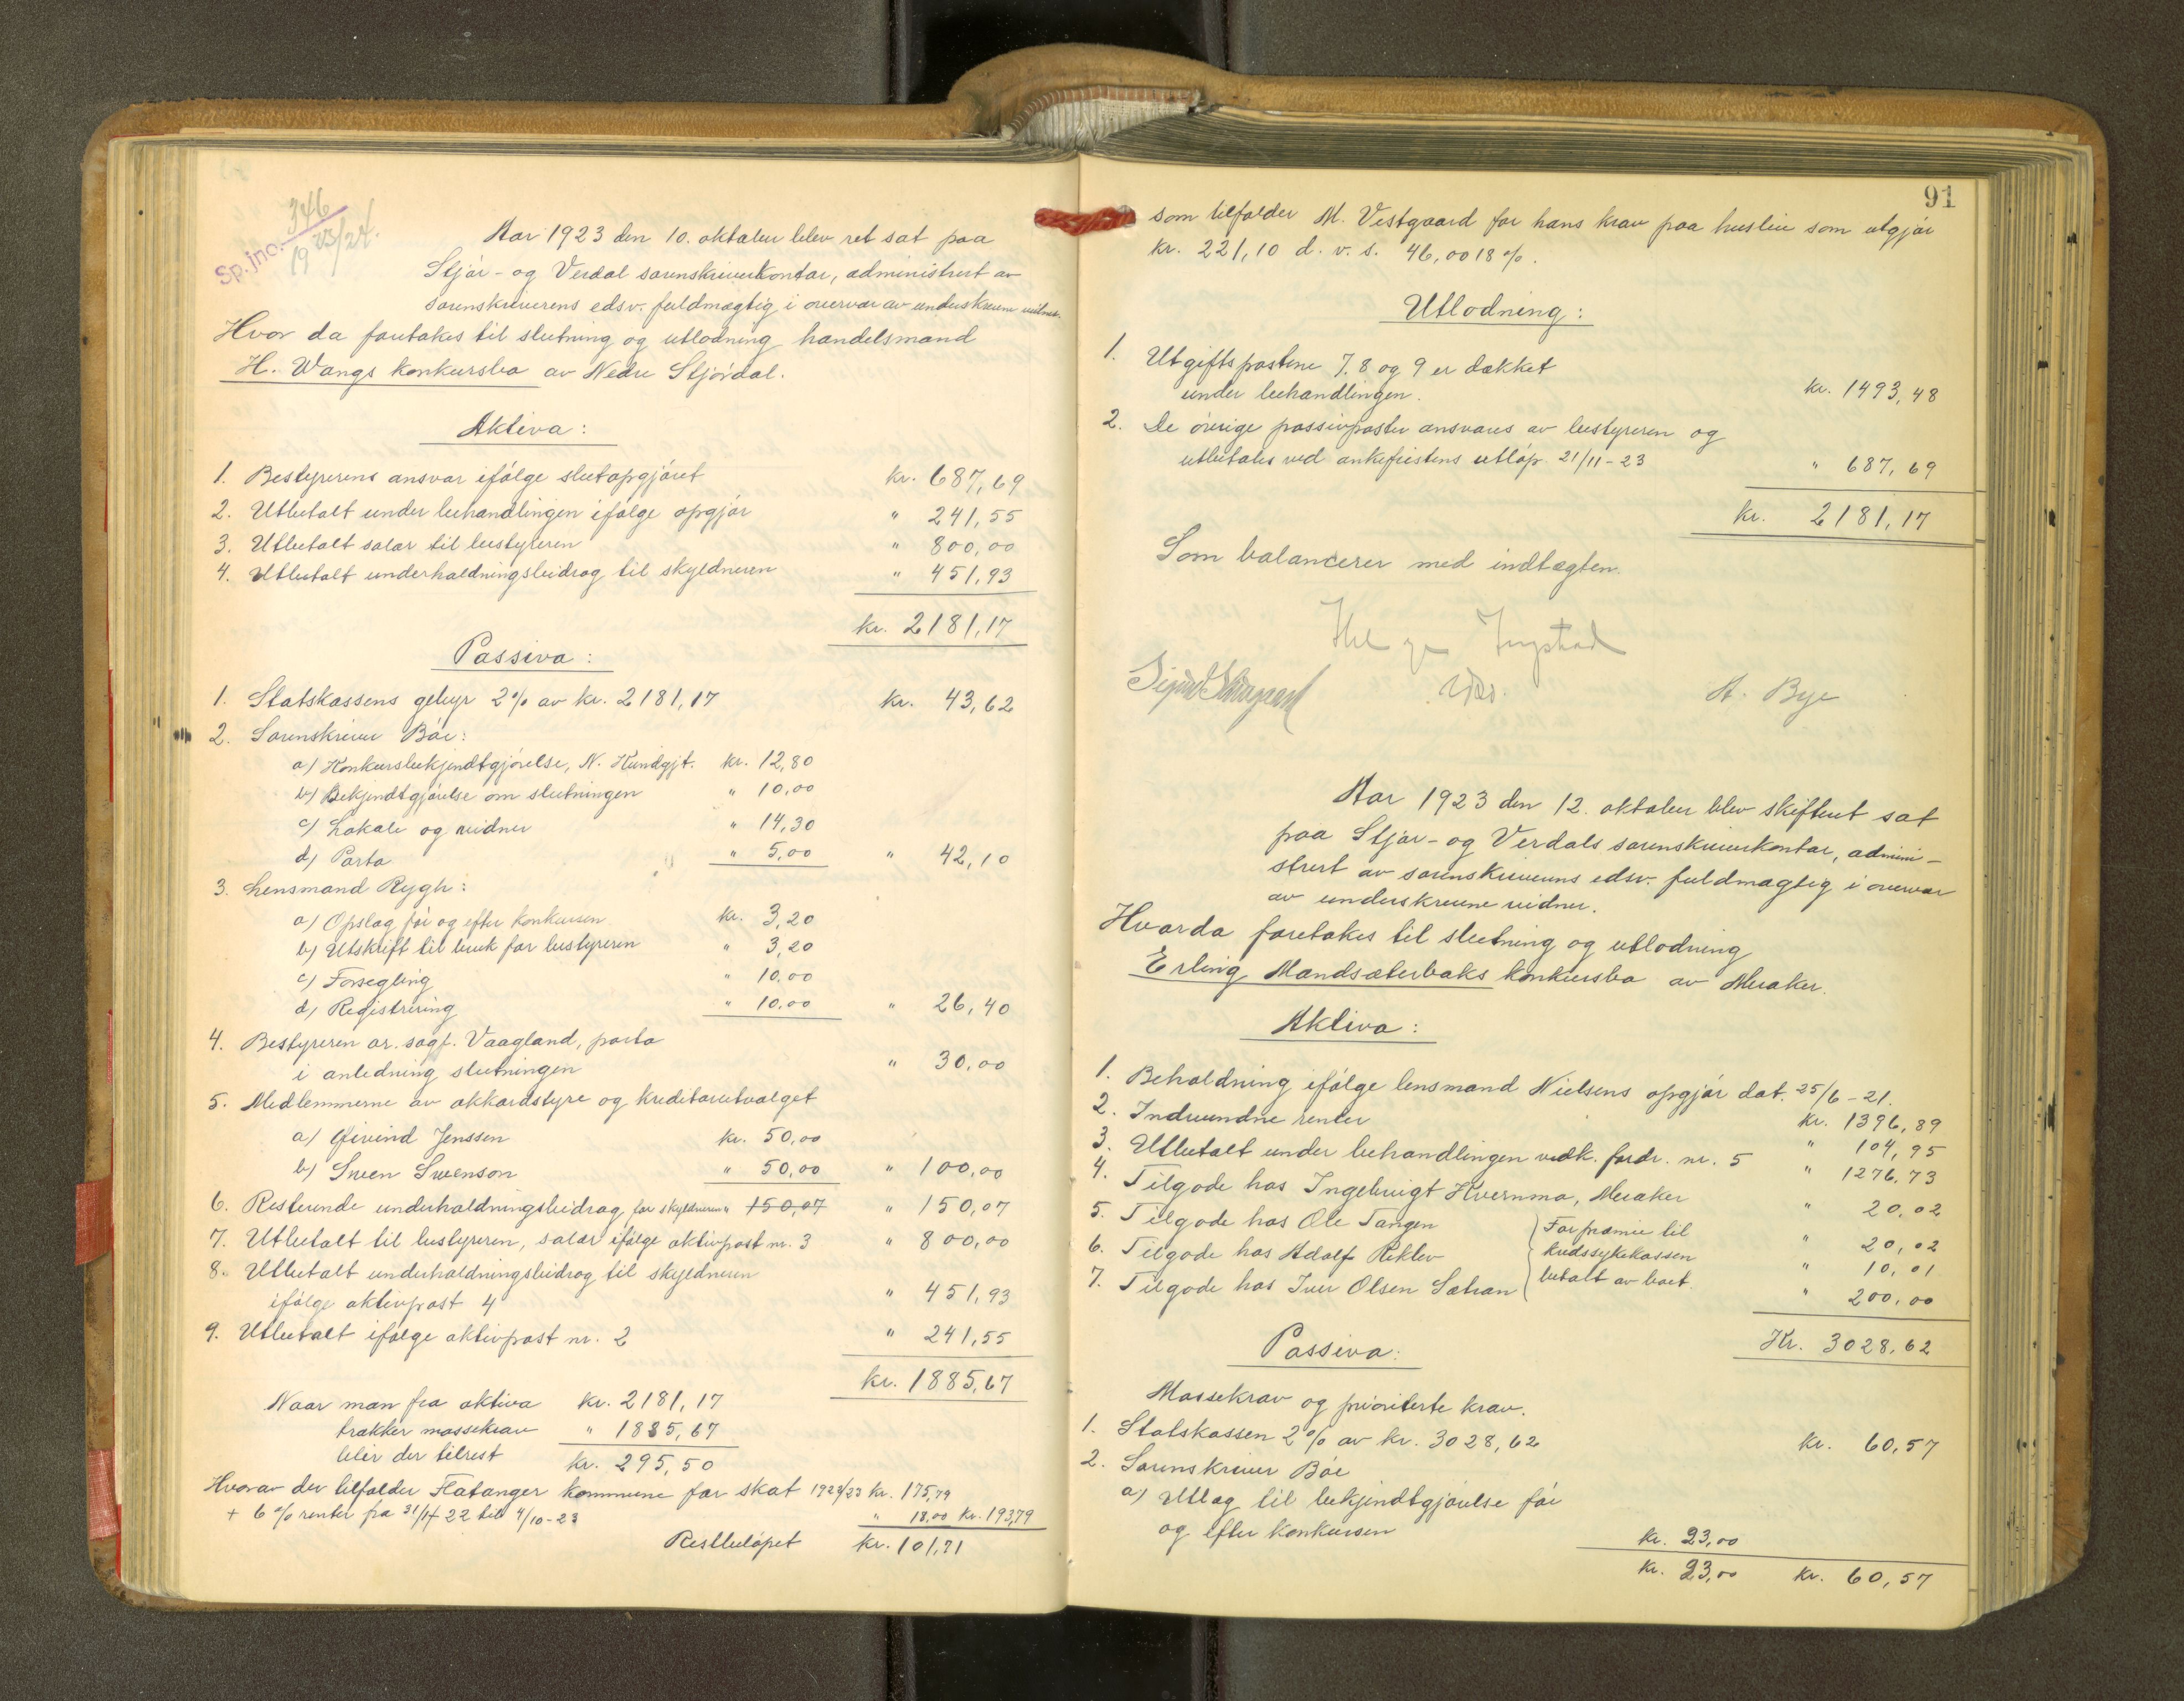 Sp.jnr. 346
1923/24.
Aar 1923 den 10. oktober blev ret sat paa
Stjør- og Verdal sorenskriverkontor, administrert av
sorenskriverens edsv. fuldmægtig i overvær av underskrevne vidner.
Hvor da foretakes til slutning og utlodning handelsmand
H. Wangs konkursbo av Nedre Stjørdal.
Aktiva:
1. Bestyrerens ansvar ifølge slutopgjøret kr. 687,69
2. Utbetalt under behandlingen ifølge opgjør " 241,55
3. Utbetalt salær til bestyreren " 800,00
4. Utbetalt underholdningsbidrag til skyldneren " 451,93
kr. 2181,17
Passiva:
1. Statskassens gebyr 2% av kr. 2181,17 kr. 43,62
2. Sorenskriver Bøe:
a) Konkursbekjendtgjørelse, N. Kundgjt. kr. 12,80
b) Bekjendtgjørelse om slutningen " 10,00
c) Lokale og vidner " 14,30
d) Porto " 5,00 " 42,10
3. Lensmand Rygh:
a) Opslag før og efter konkursen kr. 3,20
b) Utskrift til bruk for bestyreren " 3,20
c) Forsegling " 10,00
d) Registrering " 10,00 " 26,40
4. Bestyreren or. sagf. Vaagland, porto
i anledning slutningen " 30,00
5. Medlemmerne av akkordstyre og kreditorutvalget
a) Øivind Jenssen kr. 50,00
b) Sven Svenson " 50,00 " 100,00
6. Resterende underholdningsbidrag for skyldneren " 150,07 " 150,07
7. Utbetalt til bestyreren, salær ifølge aktivpost nr. 3 " 800,00
8. Utbetalt underholdningsbidrag til skyldneren
ifølge aktivpost 4 " 451,93
9. Utbetalt ifølge aktivpost nr. 2 " 241,55
kr. 1885,67
Naar man fra aktiva kr. 2181,17
trækker massekrav " 1885,67
blir der tilrest kr. 295,50
Hvorav der tilfalder Flatanger kommune for skat 1922/23 kr. 175,79
+ 6% renter fra 31/1 22 til 4/10-23 " 18,00 kr. 193,79
Restbeløpet kr. 101,71
91
som tilfalder M. Vestgaard for hans krav paa husleie som utgjør
kr. 221,10 d. v. s. 46,0018%.
Utlodning:
1. Utgiftspostene 7. 8 og 9 er dækket
under behandlingen. kr. 1493,48
2. De øvrige passivposter ansvares av bestyreren og
utbetales ved ankefristens utløp 21/11-23 " 687,69
kr. 2181,17
Som balancerer med indtægten.
Helge Ingstad
A. Bye
Aar 1923 den 12. oktober blev skifteret sat
paa Stjør- og Verdals sorenskriverkontor, admini-
strert av sorenskriverens edsv. fuldmægtig i overvær
av underskrevne vidner.
Hvorda foretakes til slutning og utlodning
Erling Mandsæterbaks konkursbo av Meraker.
Aktiva:
1. Beholdning ifølge lensmand Nielsens opgjør dat. 25/6-21. kr. 1396,89
2. Indvundne renter " 104,95
3. Utbetalt under behandlingen vedk. fordr. nr. 5 " 1276,73
4. Tilgode hos Ingebrigt Kvernmo, Meraker " 20,02
5. Tilgode hos Ole Tangen " 20,02
6. Tilgode hos Adolf Reklev " 10,01
7. Tilgode hos Iver Olsen Sætran " 200,00
For præmie til
kredssykekassen
betalt av boet.
Kr. 3028,62
Passiva:
Massekrav og prioriterte krav.
1. Statskassen 2% av kr. 3028,62 kr. 60,57
2. Sorenskriver Bøe
a) Utlæg til bekjendtgjørelse før
og efter konkursen kr. 23,00
kr. 23,00 kr. 60,57